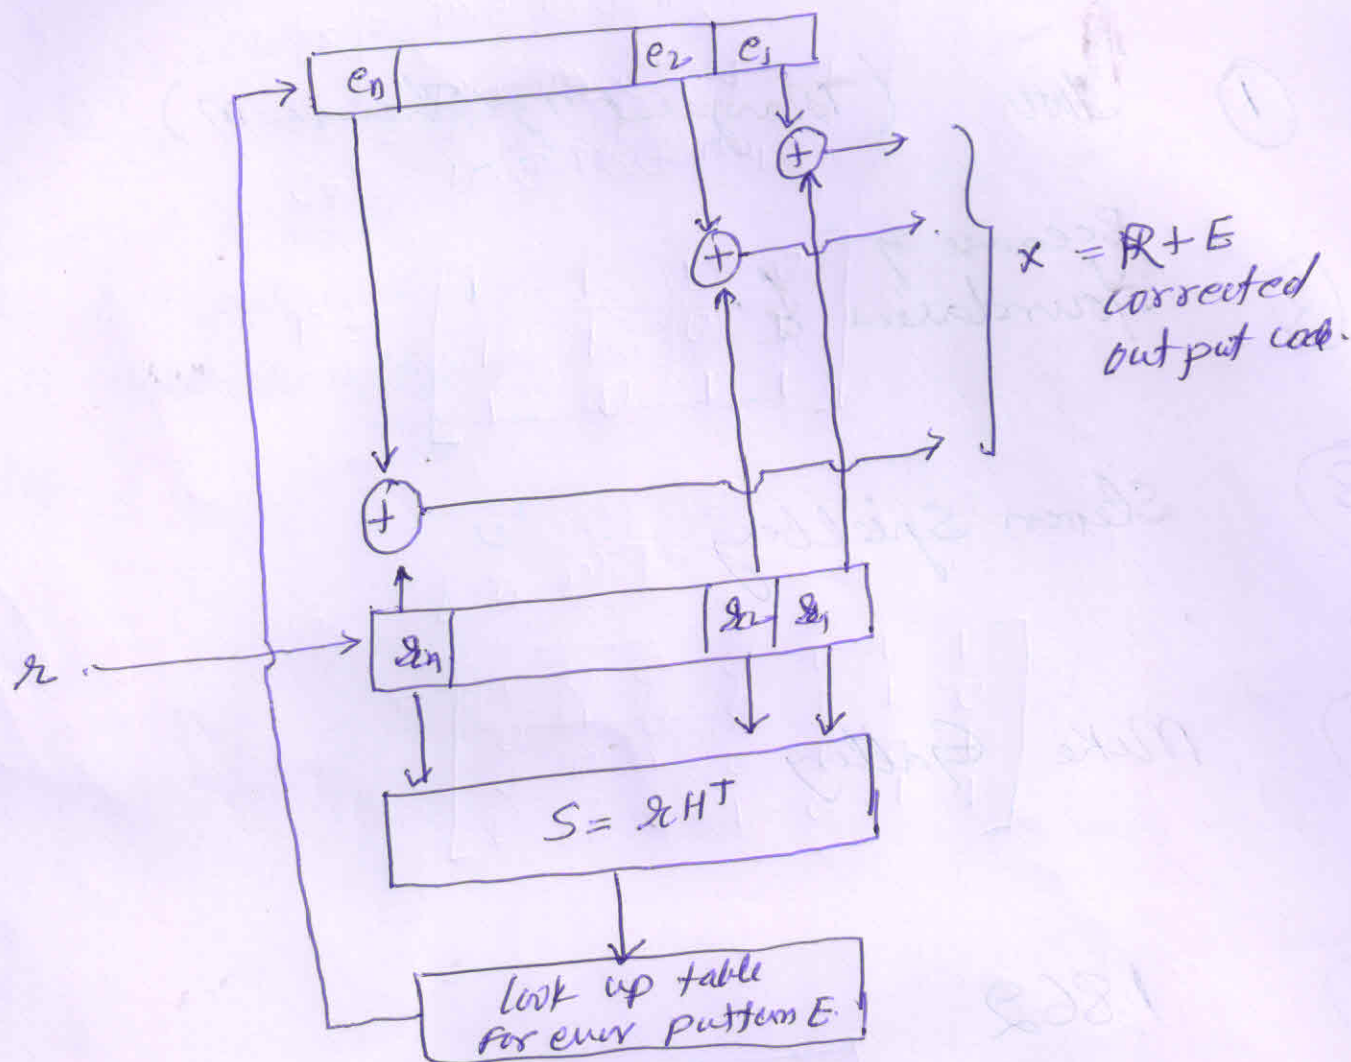 en e2 e1
+
+
x = R + E
corrected
out put code.
+
r
rn r2 r1
S = rH^T
look up table
for error pattern E.